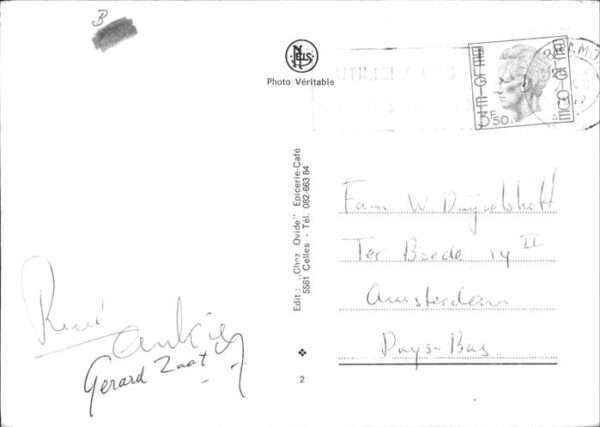 B
NELS
Photo Véritable
BELGIE BELGIQUE
3F50
Edit : „Chez Ovide" Epicerie-Café
5561 Celles - Tél. 082-663 84
2
Fam W Duyvelshoff
Ter Boede 14 II
Amsterdam
Pays-Bas
René
Ankie
Gerard Zaat